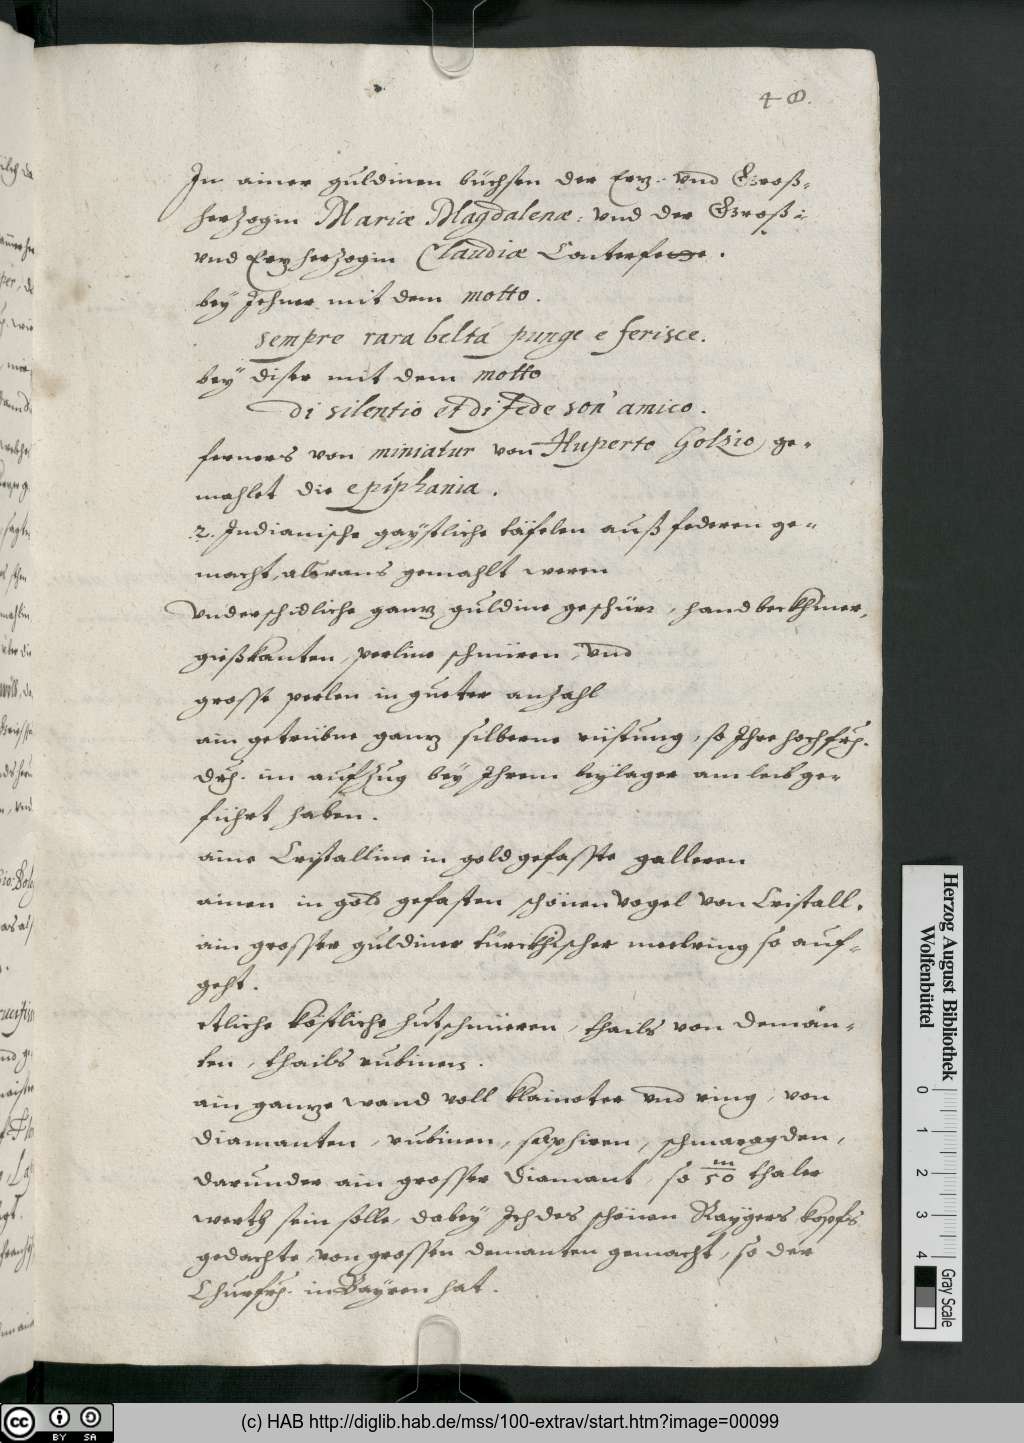 48.
In ainer guldinen büchsen der Erz- vnd Groß-
herzogin Mariæ Magdalenæ: vnd der Groß-
vnd Erzherzogin Claudiæ Conterfette.
bey Jehner mit dem motto.
sempre rara beltá punge e ferisce.
bey diser mit dem motto
di silentio et di fede son' amico.
ferners von miniatur von Huperto Golzio ge-
mahlet die epiphania.
2. Indianische gaystliche täfelen auß federen ge-
macht, als wans gemahlt weren
Vnderschidliche ganz guldine geschürr, handbeckhiner,
gießkanten, perline schnüeren, vnd
grosse perlen in gueter anzahl
ain getribne ganz silberne rüstung, so Ihre hochfrh.
Drh. im aufzug bey Ihrem beylager am leib ge-
führt haben.
aine Cristalline in gold gefasste galleren
ainen in gold gefasten schönen vogel von Cristall.
ain grosser guldiner türckhischer meelring so auf-
geht.
etliche köstliche huetschnüeren, thails von deman-
ten, thails rubinen.
ain ganze wand voll klainoter vnd ring, von
diamanten, rubinen, saphiren, schmaragden,
darunder ain grosser diamant, so m/50 thaler
werth sein solle, dabey Ich des schönen Raygers kopfs
gedachte, von grossen demanten gemacht, so der
Churfrh. in Bayren hat.
Herzog August Bibliothek
Wolfenbüttel
0 1 2 3 4
Gray Scale
cc BY SA
(c) HAB http://diglib.hab.de/mss/100-extrav/start.htm?image=00099